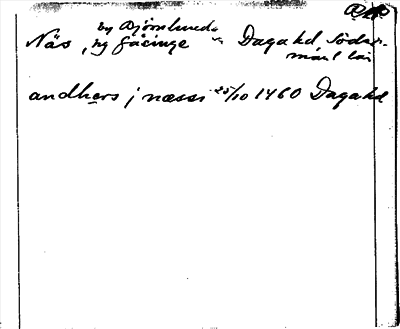 by Björnlunda
Näs, ng Gåsinge sn Daga hd, Söder-
manl län
andhers j næssi 25/10 1460 Daga hd